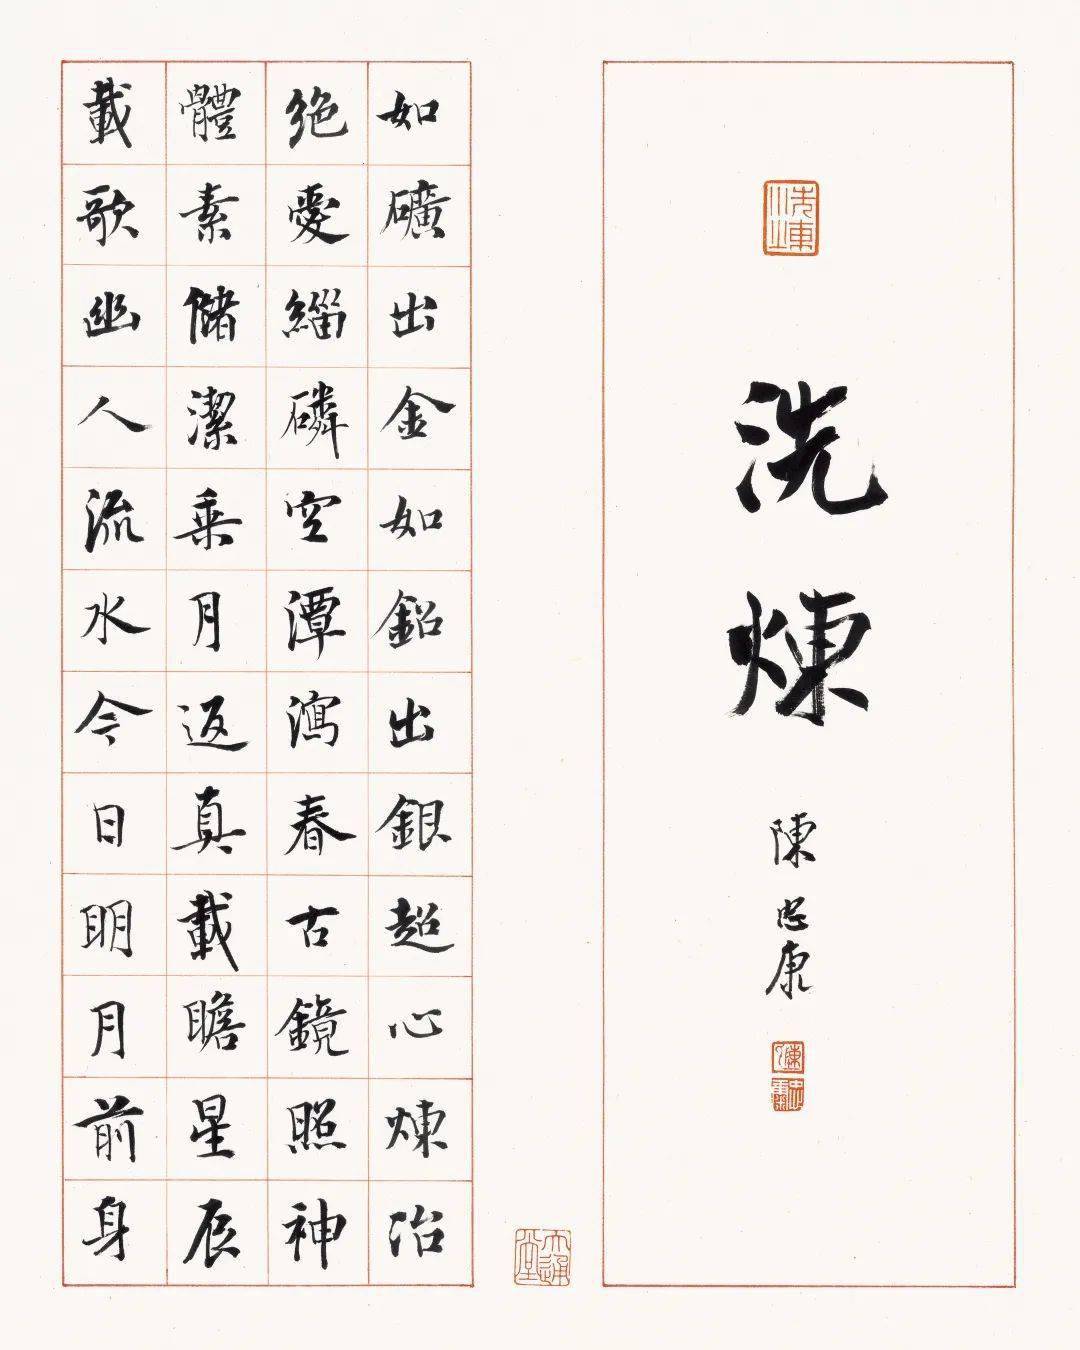 洗煉
陳忠康
如礦出金如鉛出銀超心煉治
絶愛緇磷空潭瀉春古鏡照神
體素儲潔乗月返真載瞻星辰
載歌幽人流水今日明月前身